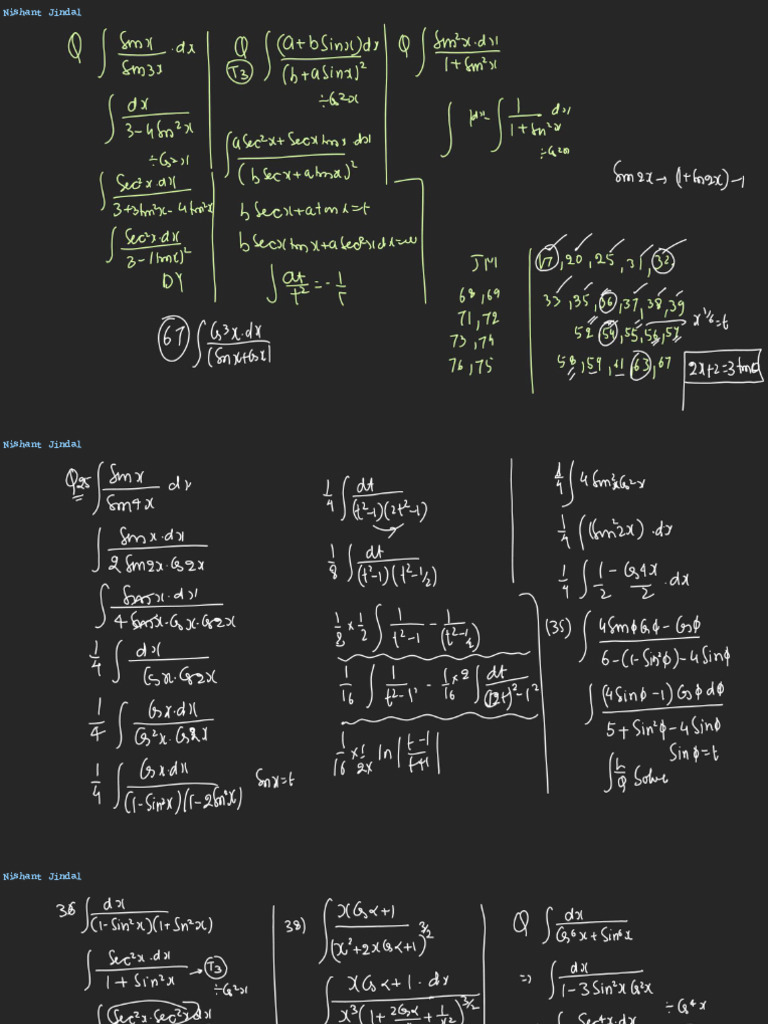 Nishant Jindal
Q ∫ Sinx/Sin3x · dx
∫ dx/(3-4Sin²x)
÷Cos²x
∫ Sec²x·dx/(3+3tan²x-4tan²x)
∫ Sec²x·dx/(3-(tanx)²)
DY
Q ∫ (a+bSinx)dx/(b+aSinx)²
T3
÷Cos²x
∫ aSec²x+Secxtanx dx/(bSecx+atanx)²
bSecx+atanx=t
bSecxtanx+aSec²xdx=dt
∫ dt/t² = -1/t
Q ∫ Sin²x·dx/(1+Sin²x)
∫ 1dx - ∫ 1/(1+Sin²x) dx
÷Cos²x
Sin2x→(1+Sin2x)-1
67 ∫ Cos³x·dx/(Sinx+Cosx)
JM
68,69
71,72
73,74
76,75
17,20,25,31,32
33,35,36,37,38,39
52,54,55,56,57
x^1/6=t
58,59,61,63,67
2x+2=3tanθ
Nishant Jindal
Q25 ∫ Sinx/Sin4x dx
∫ Sinx·dx/(2Sin2x·Cos2x)
∫ Sinx·dx/(4Sinx·Cosx·Cos2x)
1/4 ∫ dx/(Cosx·Cos2x)
1/4 ∫ Cosx·dx/(Cos²x·Cos2x)
1/4 ∫ Cosxdx/((1-Sin²x)(1-2Sin²x))
Sinx=t
1/4 ∫ dt/((t²-1)(2t²-1))
1/8 ∫ dt/((t²-1)(t²-1/2))
1/8×1/2 ∫ 1/(t²-1) - 1/(t²-1/2)
1/16 ∫ 1/(t²-1²) - 1/16×2 ∫ dt/((√2t)²-1²)
1/16×1/2x ln|(t-1)/(t+1)|
1/4 ∫ 4Sin²xCos²x
1/4 ∫ (Sin²2x)·dx
1/4 ∫ 1/2 - Cos4x/2 ·dx
(35) ∫ 4SinϕCosϕ-Cosϕ/(6-(1-Sin²ϕ)-4Sinϕ)
∫ (4Sinϕ-1)Cosϕdϕ/(5+Sin²ϕ-4Sinϕ)
Sinϕ=t
∫ L/Q Solve
Nishant Jindal
36 ∫ dx/((1-Sin²x)(1+Sin²x))
∫ Sec²x·dx/(1+Sin²x) → T3
÷Cos²x
∫ Sec²x·Sec²xdx
38) ∫ xCosα+1/(x²+2xCosα+1)^3/2
∫ xCosα+1·dx/(x³(1+2Cosα/x+1/x²)^3/2)
Q ∫ dx/(Cos⁶x+Sin⁶x)
⇒ ∫ dx/(1-3Sin²xCos²x)
÷Cos⁴x
∫ Sec⁴x·dx